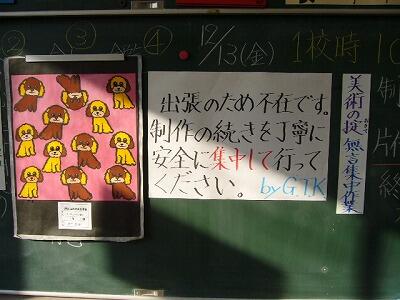 ②
③
④
12/13(金)
1校時
出張のため不在です。
制作の続きを丁寧に
安全に集中して行って
ください。 by G.T.K
美術の掟 無言集中作業
おきて